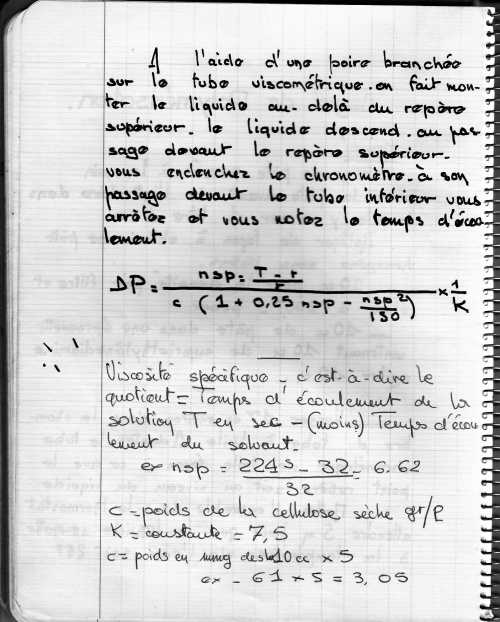 A l'aide d'une poire branchée
sur le tube viscométrique. on fait mon-
ter le liquide au-delà du repère
supérieur. le liquide descend. au pas
sage devant le repère supérieur.
vous enclenchez le chronomètre. à son
passage devant le tube intérieur vous
arrêtez et vous notez le temps d'écou
lement.
DP = nsp = T - r / r
c ( 1 + 0,25 nsp - nsp² / 130 ) × 1 / K
Viscosité spécifique - c'est-à-dire le
quotient = Temps d'écoulement de la
solution T en sec - (moins) Temps d'écou
lement du solvant.
ex nsp = 224s - 32 / 32 = 6.62
c = poids de la cellulose sèche gr/l
K = constante = 7,5
c = poids en mmg des 10 cc × 5
ex - 61 × 5 = 3,05